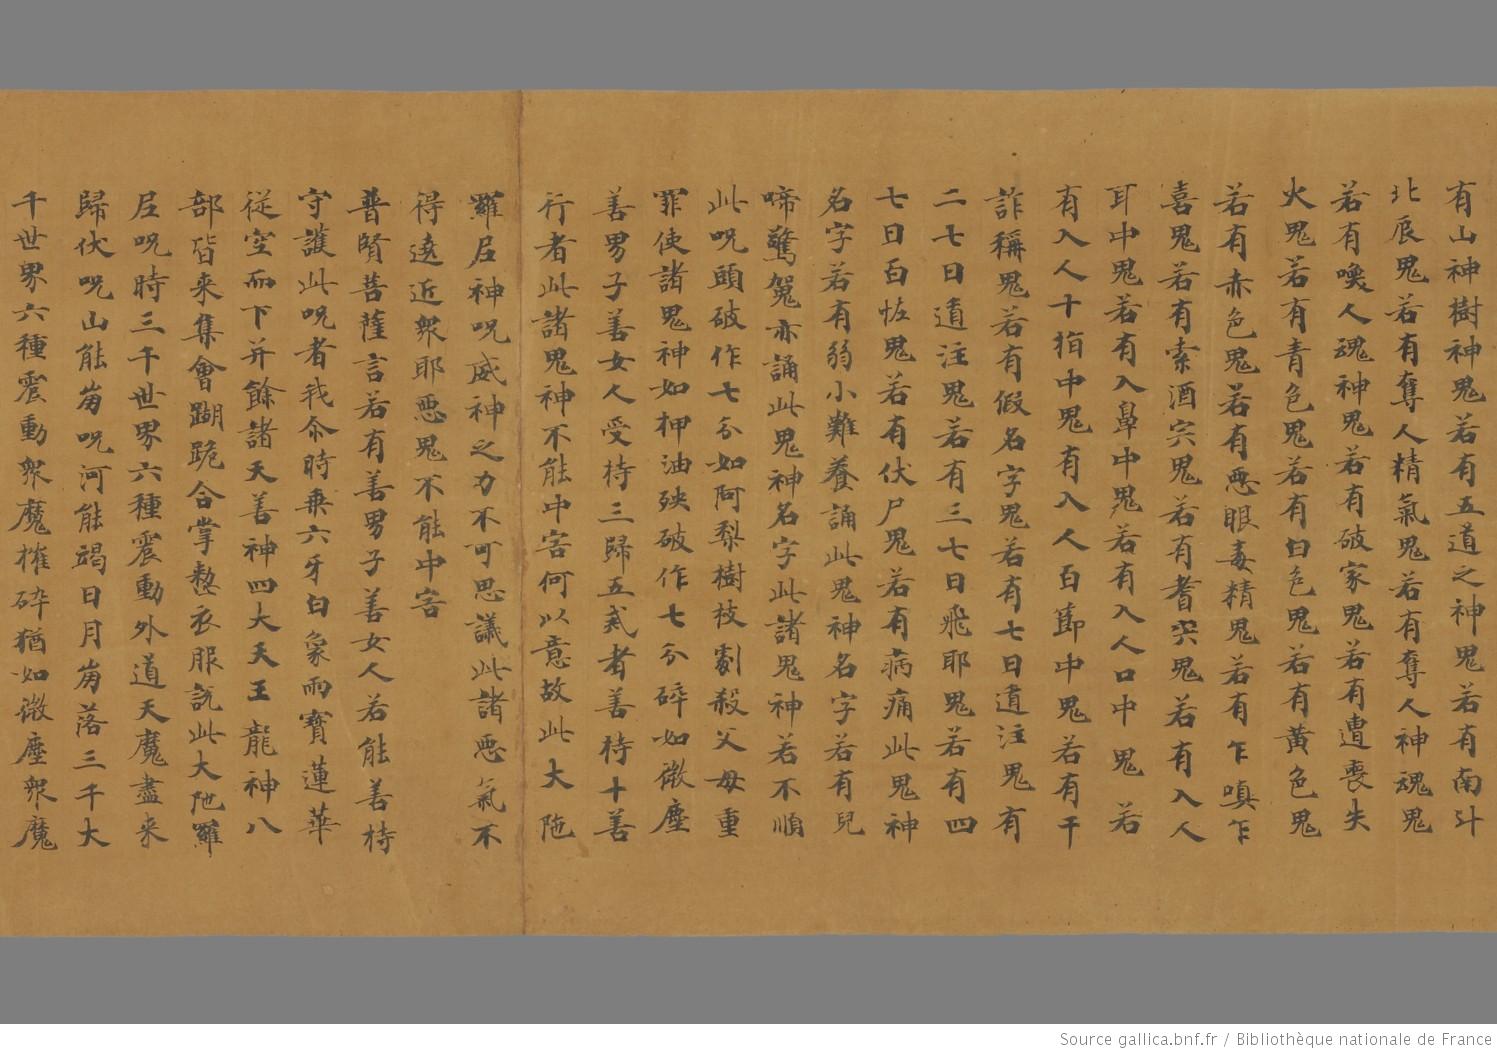 有山神樹神鬼若有五道之神鬼若有南斗
北辰鬼若有奪人精氣鬼若有奪人神魂鬼
若有喚人魂神鬼若有破家鬼若有遭喪失
火鬼若有青色鬼若有白色鬼若有黃色鬼
若有赤色鬼若有惡眼毒精鬼若有乍嗔乍
喜鬼若有索酒宍鬼若有耆宍鬼若有入人
耳中鬼若有入鼻中鬼若有入人口中鬼若
有入人十指中鬼有入人百節中鬼若有千
詐稱鬼若有假名字鬼若有七日遺注鬼有
二七日遺注鬼若有三七日飛耶鬼若有四
七日百恠鬼若有伏尸鬼若有病痛此鬼神
名字若有弱小難養誦此鬼神名字若有兒
啼驚亦誦此鬼神名字此諸鬼神若不順
此呪頭破作七分如阿梨樹枝劙殺父母重
罪使諸鬼神如押油殃破作七分碎如微塵
善男子善女人受持三歸五戒者善持十善
行者此諸鬼神不能中害何以意故此大陁
羅尼神呪威神之力不可思議此諸惡氣不
得遶近衆耶惡鬼不能中害
普賢菩薩言若有善男子善女人若能善持
守護此呪者我尒時乘六牙白象雨寶蓮華
從空而下并餘諸天善神四大天王龍神八
部皆来集會蹦跪合掌整衣服說此大陁羅
尼呪時三千世界六種震動外道天魔盡来
歸伏呪山能崩呪河能竭日月崩落三千大
千世界六種震動衆魔摧碎猶如微塵衆魔
Source gallica.bnf.fr / Bibliothèque nationale de France